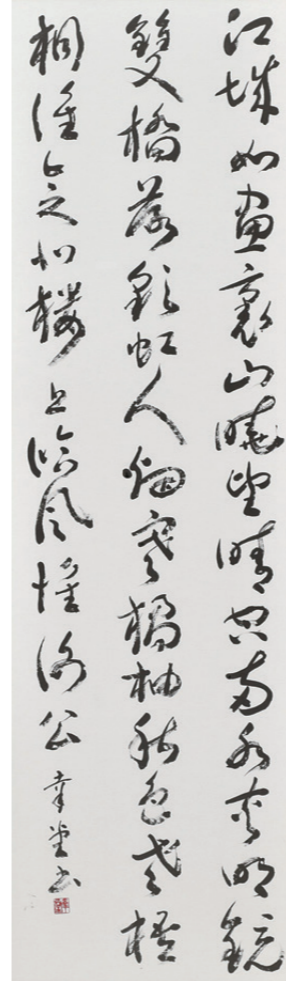 江城如畫裏山曉望晴空兩水夾明鏡
雙橋落彩虹人烟寒橘柚秋色老梧
桐誰念北樓上臨風懷謝公
堂書